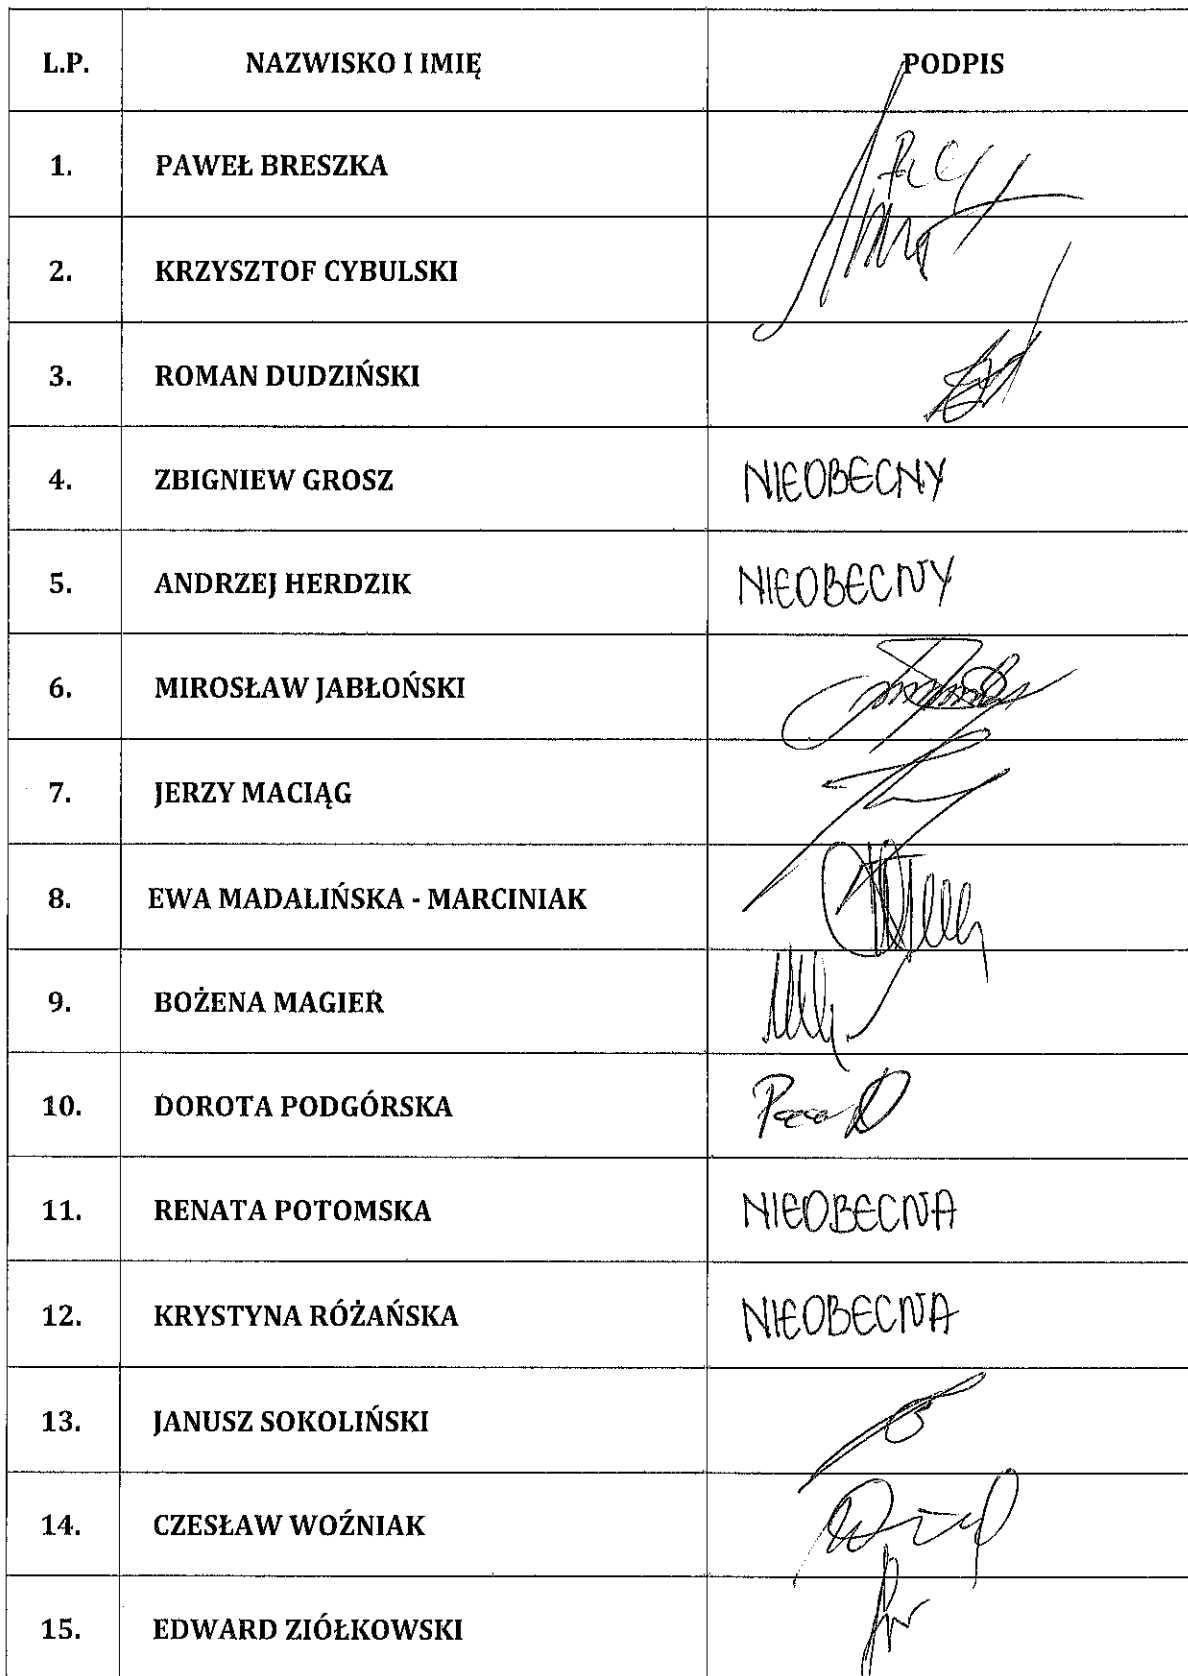 L.P. NAZWISKO I IMIĘ PODPIS
1. PAWEŁ BRESZKA
2. KRZYSZTOF CYBULSKI
3. ROMAN DUDZIŃSKI
4. ZBIGNIEW GROSZ NIEOBECNY
5. ANDRZEJ HERDZIK NIEOBECNY
6. MIROSŁAW JABŁOŃSKI
7. JERZY MACIĄG
8. EWA MADALIŃSKA - MARCINIAK
9. BOŻENA MAGIER
10. DOROTA PODGÓRSKA
11. RENATA POTOMSKA NIEOBECNA
12. KRYSTYNA RÓŻAŃSKA NIEOBECNA
13. JANUSZ SOKOLIŃSKI
14. CZESŁAW WOŹNIAK
15. EDWARD ZIÓŁKOWSKI